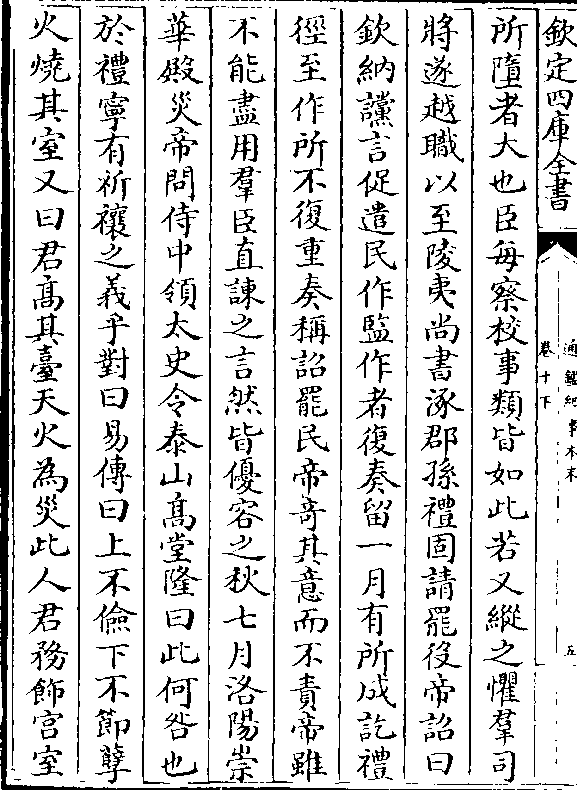 欽定四庫全書
通鑑紀事本末
卷十下
五
所墮者大也臣每察校事類皆如此若又縱之懼羣司
將遂越職以至陵夷尚書涿郡孫禮固請罷役帝詔曰
欽納讜言促遣民作監作者復奏留一月有所成訖禮
徑至作所不復重奏稱詔罷民帝竒其意而不責帝雖
不能盡用羣臣直諫之言然皆優容之秋七月洛陽崇
華殿災帝問侍中領太史令泰山髙堂隆曰此何咎也
於禮寧有祈禳之義乎對曰易傳曰上不儉下不節孽
火燒其室又曰君髙其臺天火為災此人君務飾宫室